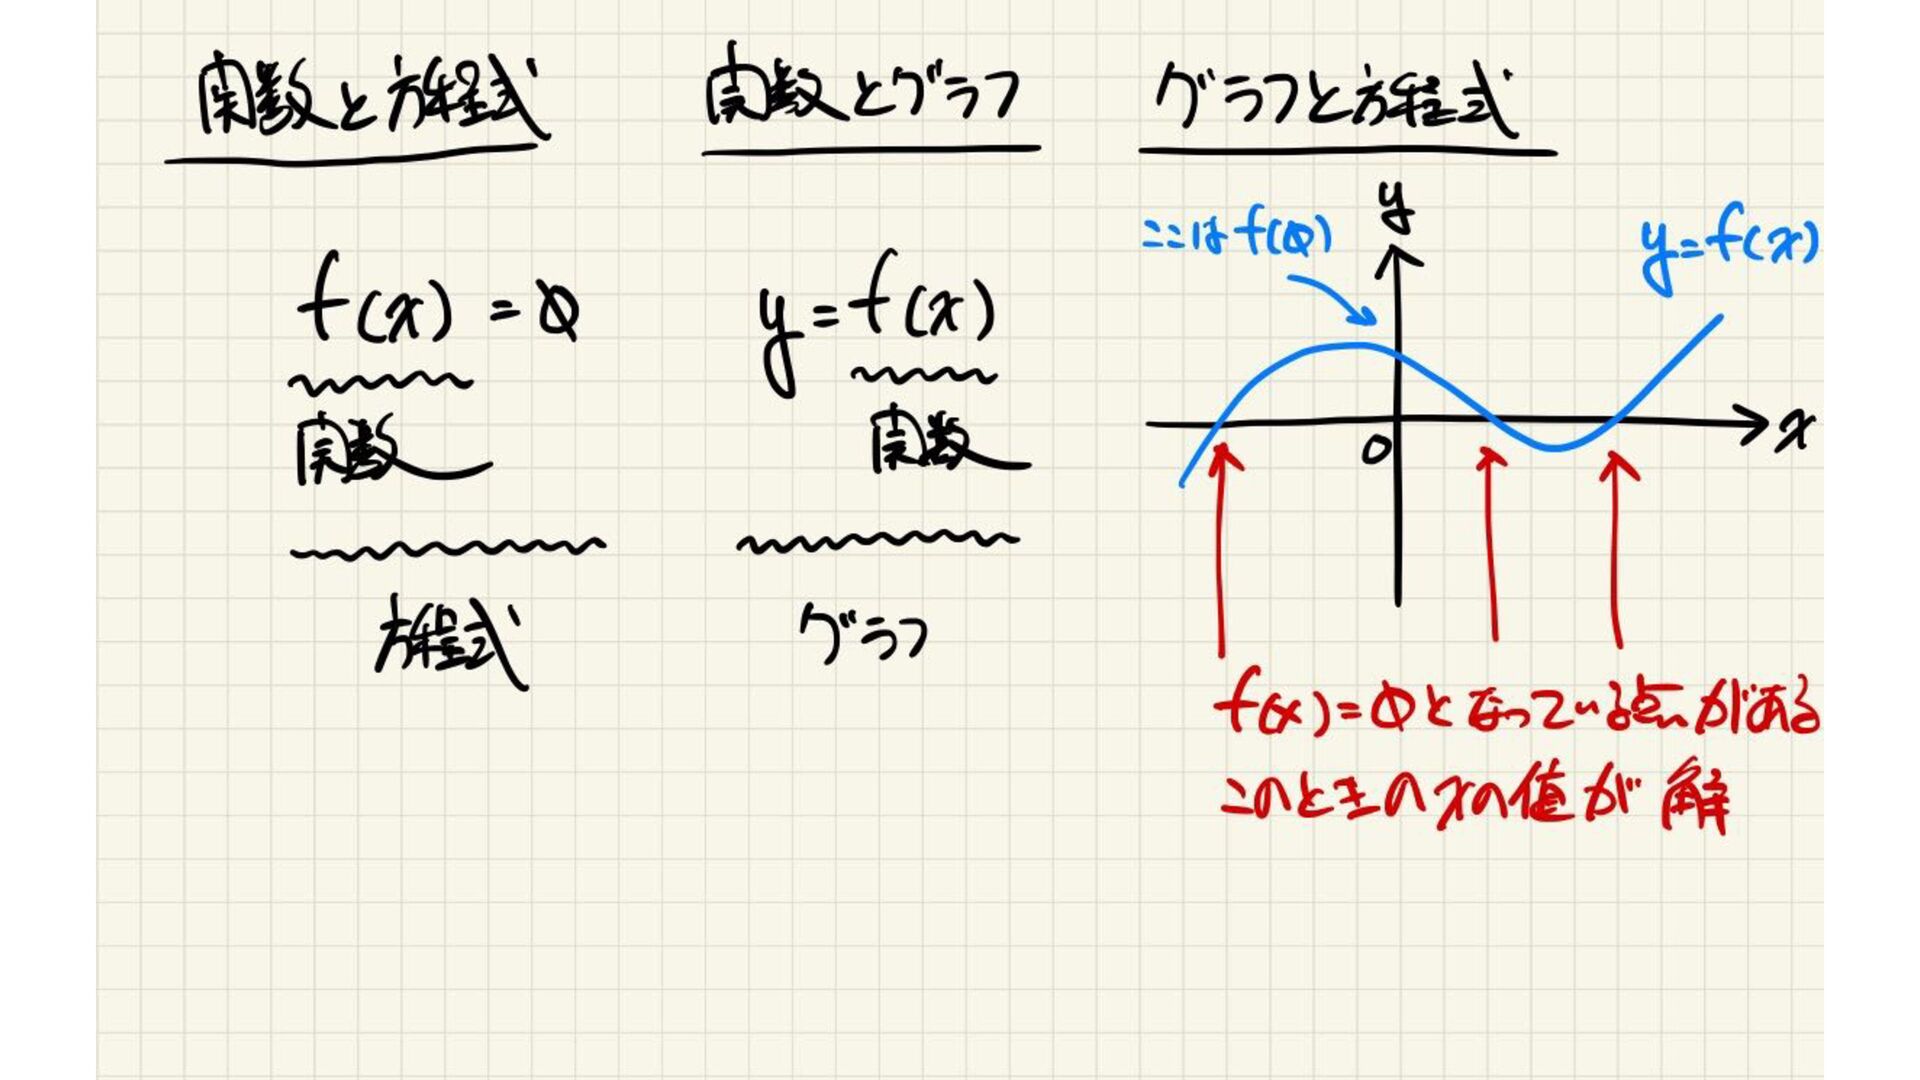 関数と方程式
f(x) = 0
関数
方程式
関数とグラフ
y = f(x)
関数
グラフ
グラフと方程式
y
ここは f(0)
y = f(x)
0
x
f(x) = 0 となっている点がある
このときの x の値が解